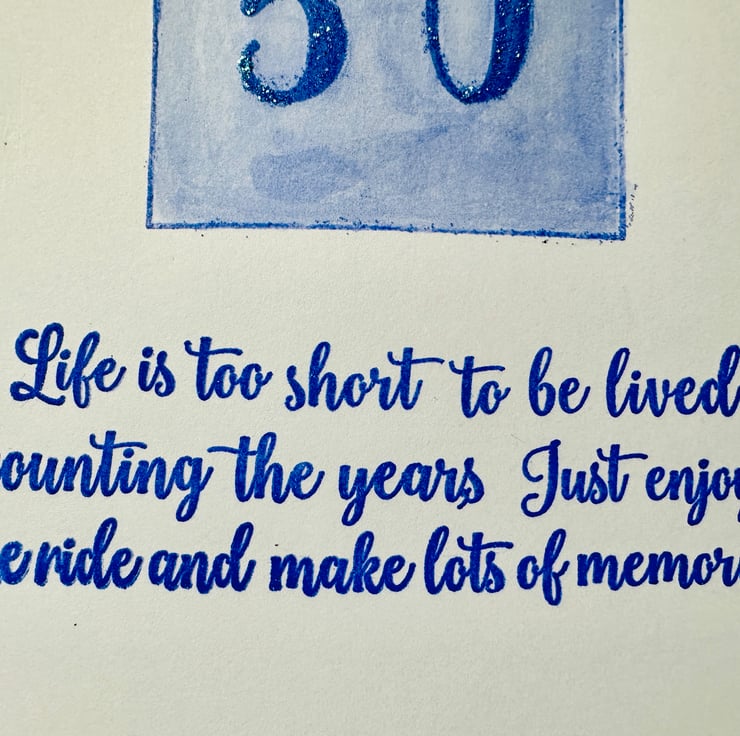 50
Life is too short to be lived
ounting the years, Just enjoy
e ride and make lots of memor